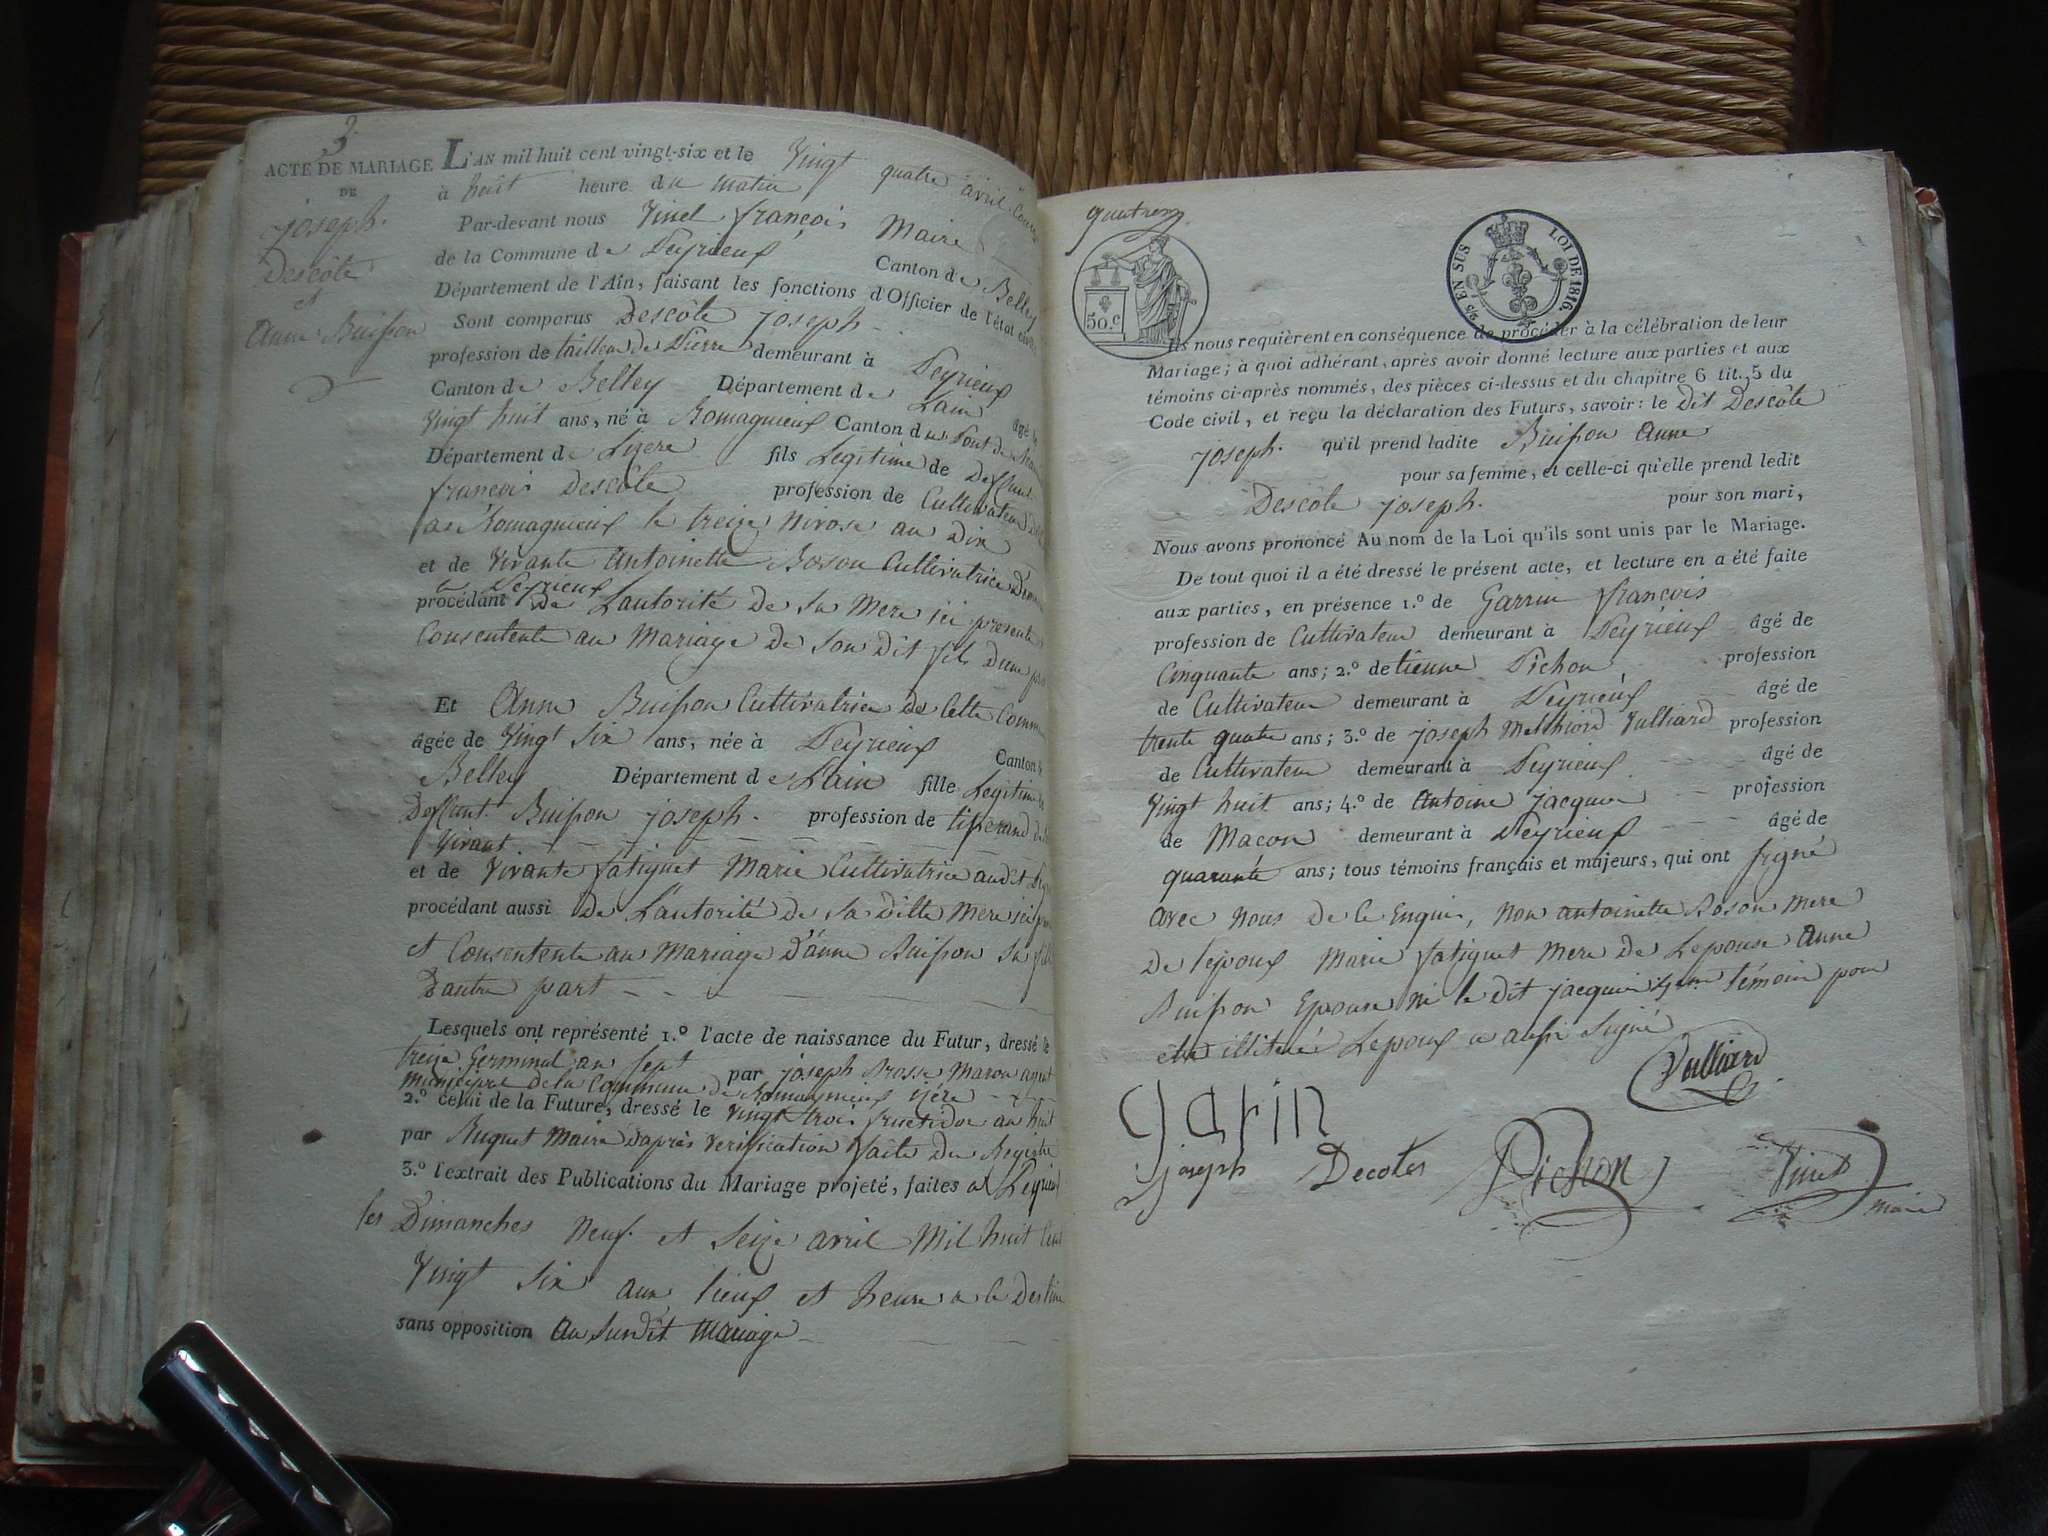 3
ACTE DE MARIAGE
DE
joseph.
Descôte
et
Anne Buisson
L'AN mil huit cent vingt-six et le Vingt quatre avril
à huit heure du matin
Par-devant nous Vinet françois Maire
de la Commune de Peyrieux Canton de Belley
Département de l'Ain, faisant les fonctions d'Officier de l'état civil
Sont comparus Descôte joseph
profession de tailleur de Pierre demeurant à Peyrieux
Canton de Belley Département de Lain âgé de
Vingt huit ans, né à Romagnieux Canton du Pont de
Département de Lizere fils Legitime de Deffunt
françois Descôte profession de Cultivateur
a Romagnieux le treize nivose an Dix
et de Vivante Antoinette Boson Cultivatrice
a Peyrieux
procédant de Lautorité de sa Mere ici presente
Consentente au Mariage de Son Dit fils Dune part
Et Anne Buisson Cultivatrice de Cette Commune
âgée de Vingt Six ans, née à Peyrieux Canton de
Belley Département de Lain fille Legitime de
Deffunt Buisson joseph. profession de tisserand
Vivant
et de Vivante fatiguet Marie Cultivatrice audit
procédant aussi De Lautorité de Sa Ditte Mere ici
et Consentente au Mariage D'anne Buisson Sa fille
Dautre part
Lesquels ont représenté 1.º l'acte de naissance du Futur, dressé le
treize Germinal an Sept par joseph Brosse Maron agent
municipal de la Commune de Romagnieux izére
2.º celui de la Future, dressé le Vingt trois fructidor an huit
par Buguet Maire daprès Verification faite du Registre
3.º l'extrait des Publications du Mariage projeté, faites a Peyrieux
les Dimanches Neuf et Seize avril Mil huit Cent
Vingt Six aux lieux et heure a ce Destiné
sans opposition au Surdit Mariage
quatre
50.c
25 EN SUS LOI DE 1816.
Ils nous requièrent en conséquence de procéder à la célébration de leur
Mariage; à quoi adhérant, après avoir donné lecture aux parties et aux
témoins ci-après nommés, des pièces ci-dessus et du chapitre 6 tit. 5 du
Code civil, et reçu la déclaration des Futurs, savoir: le Dit Descôte
joseph. qu'il prend ladite Buisson Anne
pour sa femme, et celle-ci qu'elle prend ledit
Descôte joseph. pour son mari,
Nous avons prononcé Au nom de la Loi qu'ils sont unis par le Mariage.
De tout quoi il a été dressé le présent acte, et lecture en a été faite
aux parties, en présence 1.º de Garrin françois
profession de Cultivateur demeurant à Peyrieux âgé de
Cinquante ans; 2.º de tienne Pichon profession
de Cultivateur demeurant à Peyrieux âgé de
trente quatre ans; 3.º de joseph Melchiord Vulliard profession
de Cultivateur demeurant à Peyrieux âgé de
Vingt huit ans; 4.º de Antoine jacquin profession
de Macon demeurant à Peyrieux âgé de
quarante ans; tous témoins français et majeurs, qui ont signé
avec nous De Ce Enquis, Non antoinette Boson Mere
De lepoux Marie fatiguet Mere de Lepouse Anne
Buisson Epouse ni le dit jacquin 4em témoin pour
etre illiteré Lepoux a aussi Signé
Vulliard
garin
joseph Decotes
Pichon
Vinet
maire